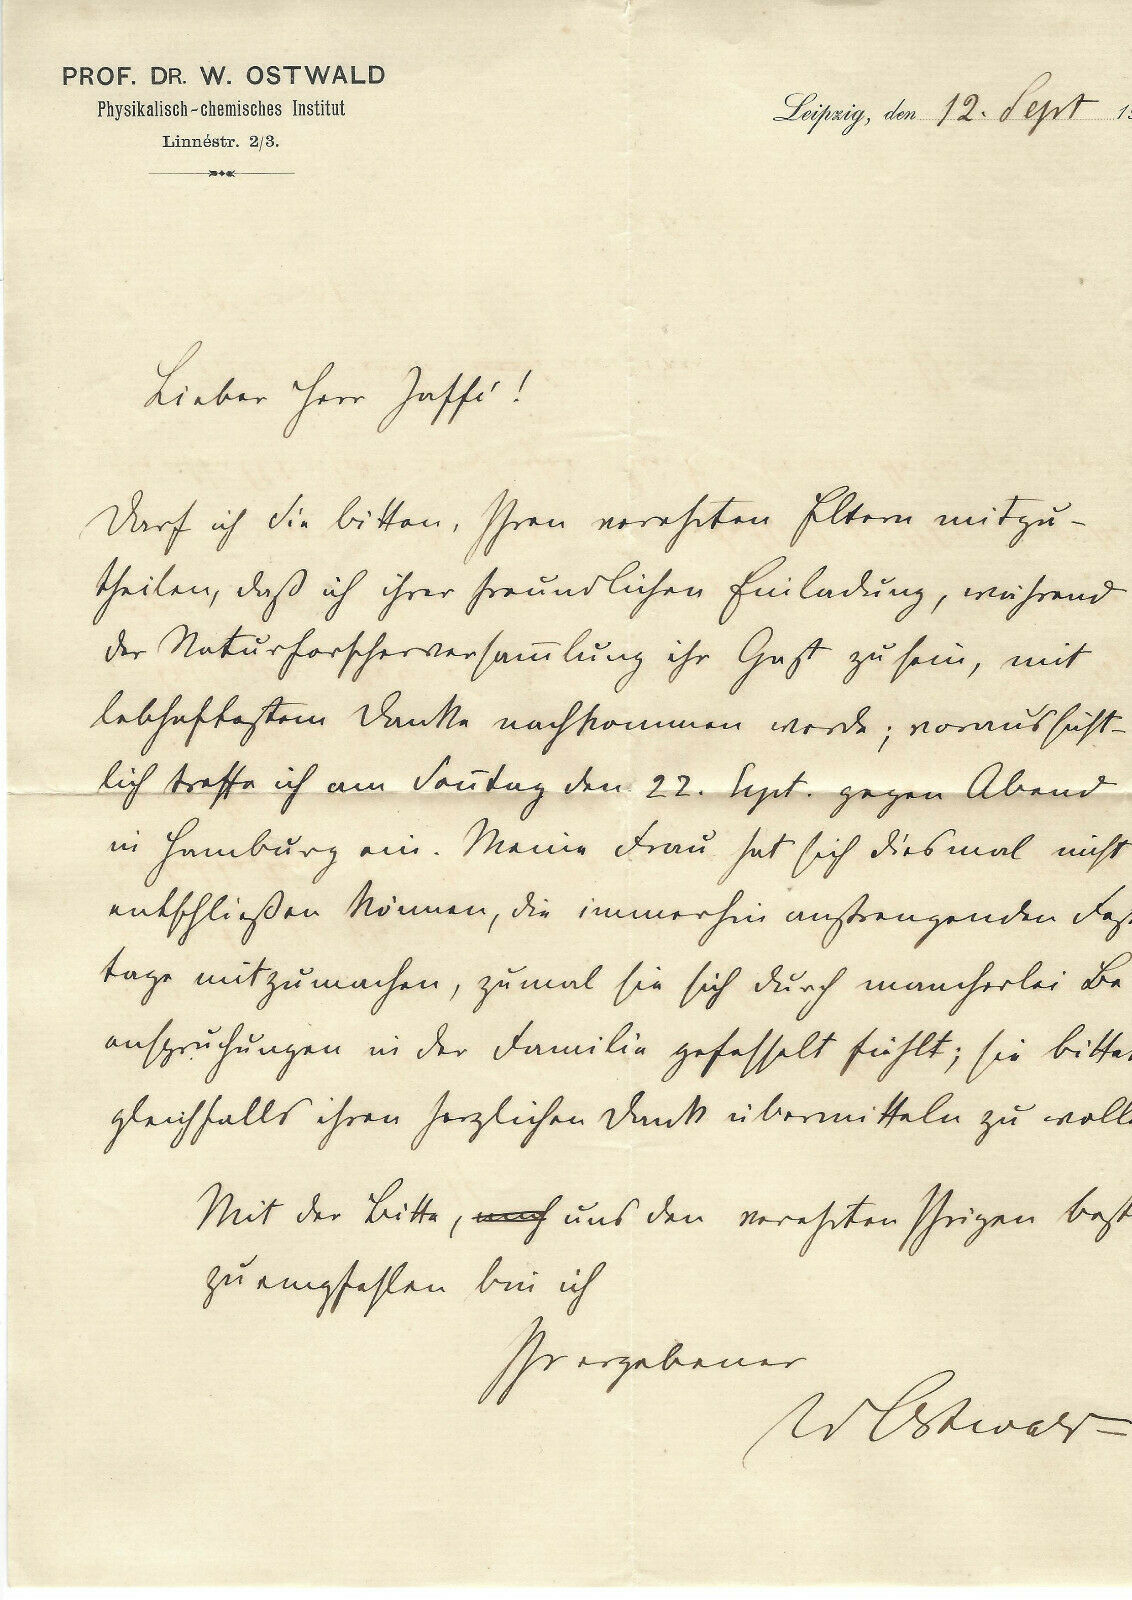 PROF. DR. W. OSTWALD
Physikalisch-chemisches Institut
Linnéstr. 2/3.
Leipzig, den 12. Sept 1
Lieber Herr Jaffé!
Darf ich Sie bitten, Ihren verehrten Eltern mitzu-
theilen, daß ich ihrer freundlichen Einladung, während
der Naturforscherversam̅lung ihr Gast zu sein, mit
lebhaftestem Danke nachkommen werde; voraussicht-
lich treffe ich am Son̅tag den 22. Sept. gegen Abend
in Hamburg ein. Meine Frau hat sich diesmal nicht
entschließen können, die immerhin anstrengenden Fest
tage mitzumachen, zumal sie sich durch mancherlei Be
anspruchungen in der Familie gefesselt fühlt; sie bittet
gleichfalls ihren herzlichen Dank übermitteln zu wolle
Mit der Bitte, uns den verehrten Ihrigen best
zu empfehlen bin ich
Ihr ergebener
W Ostwald